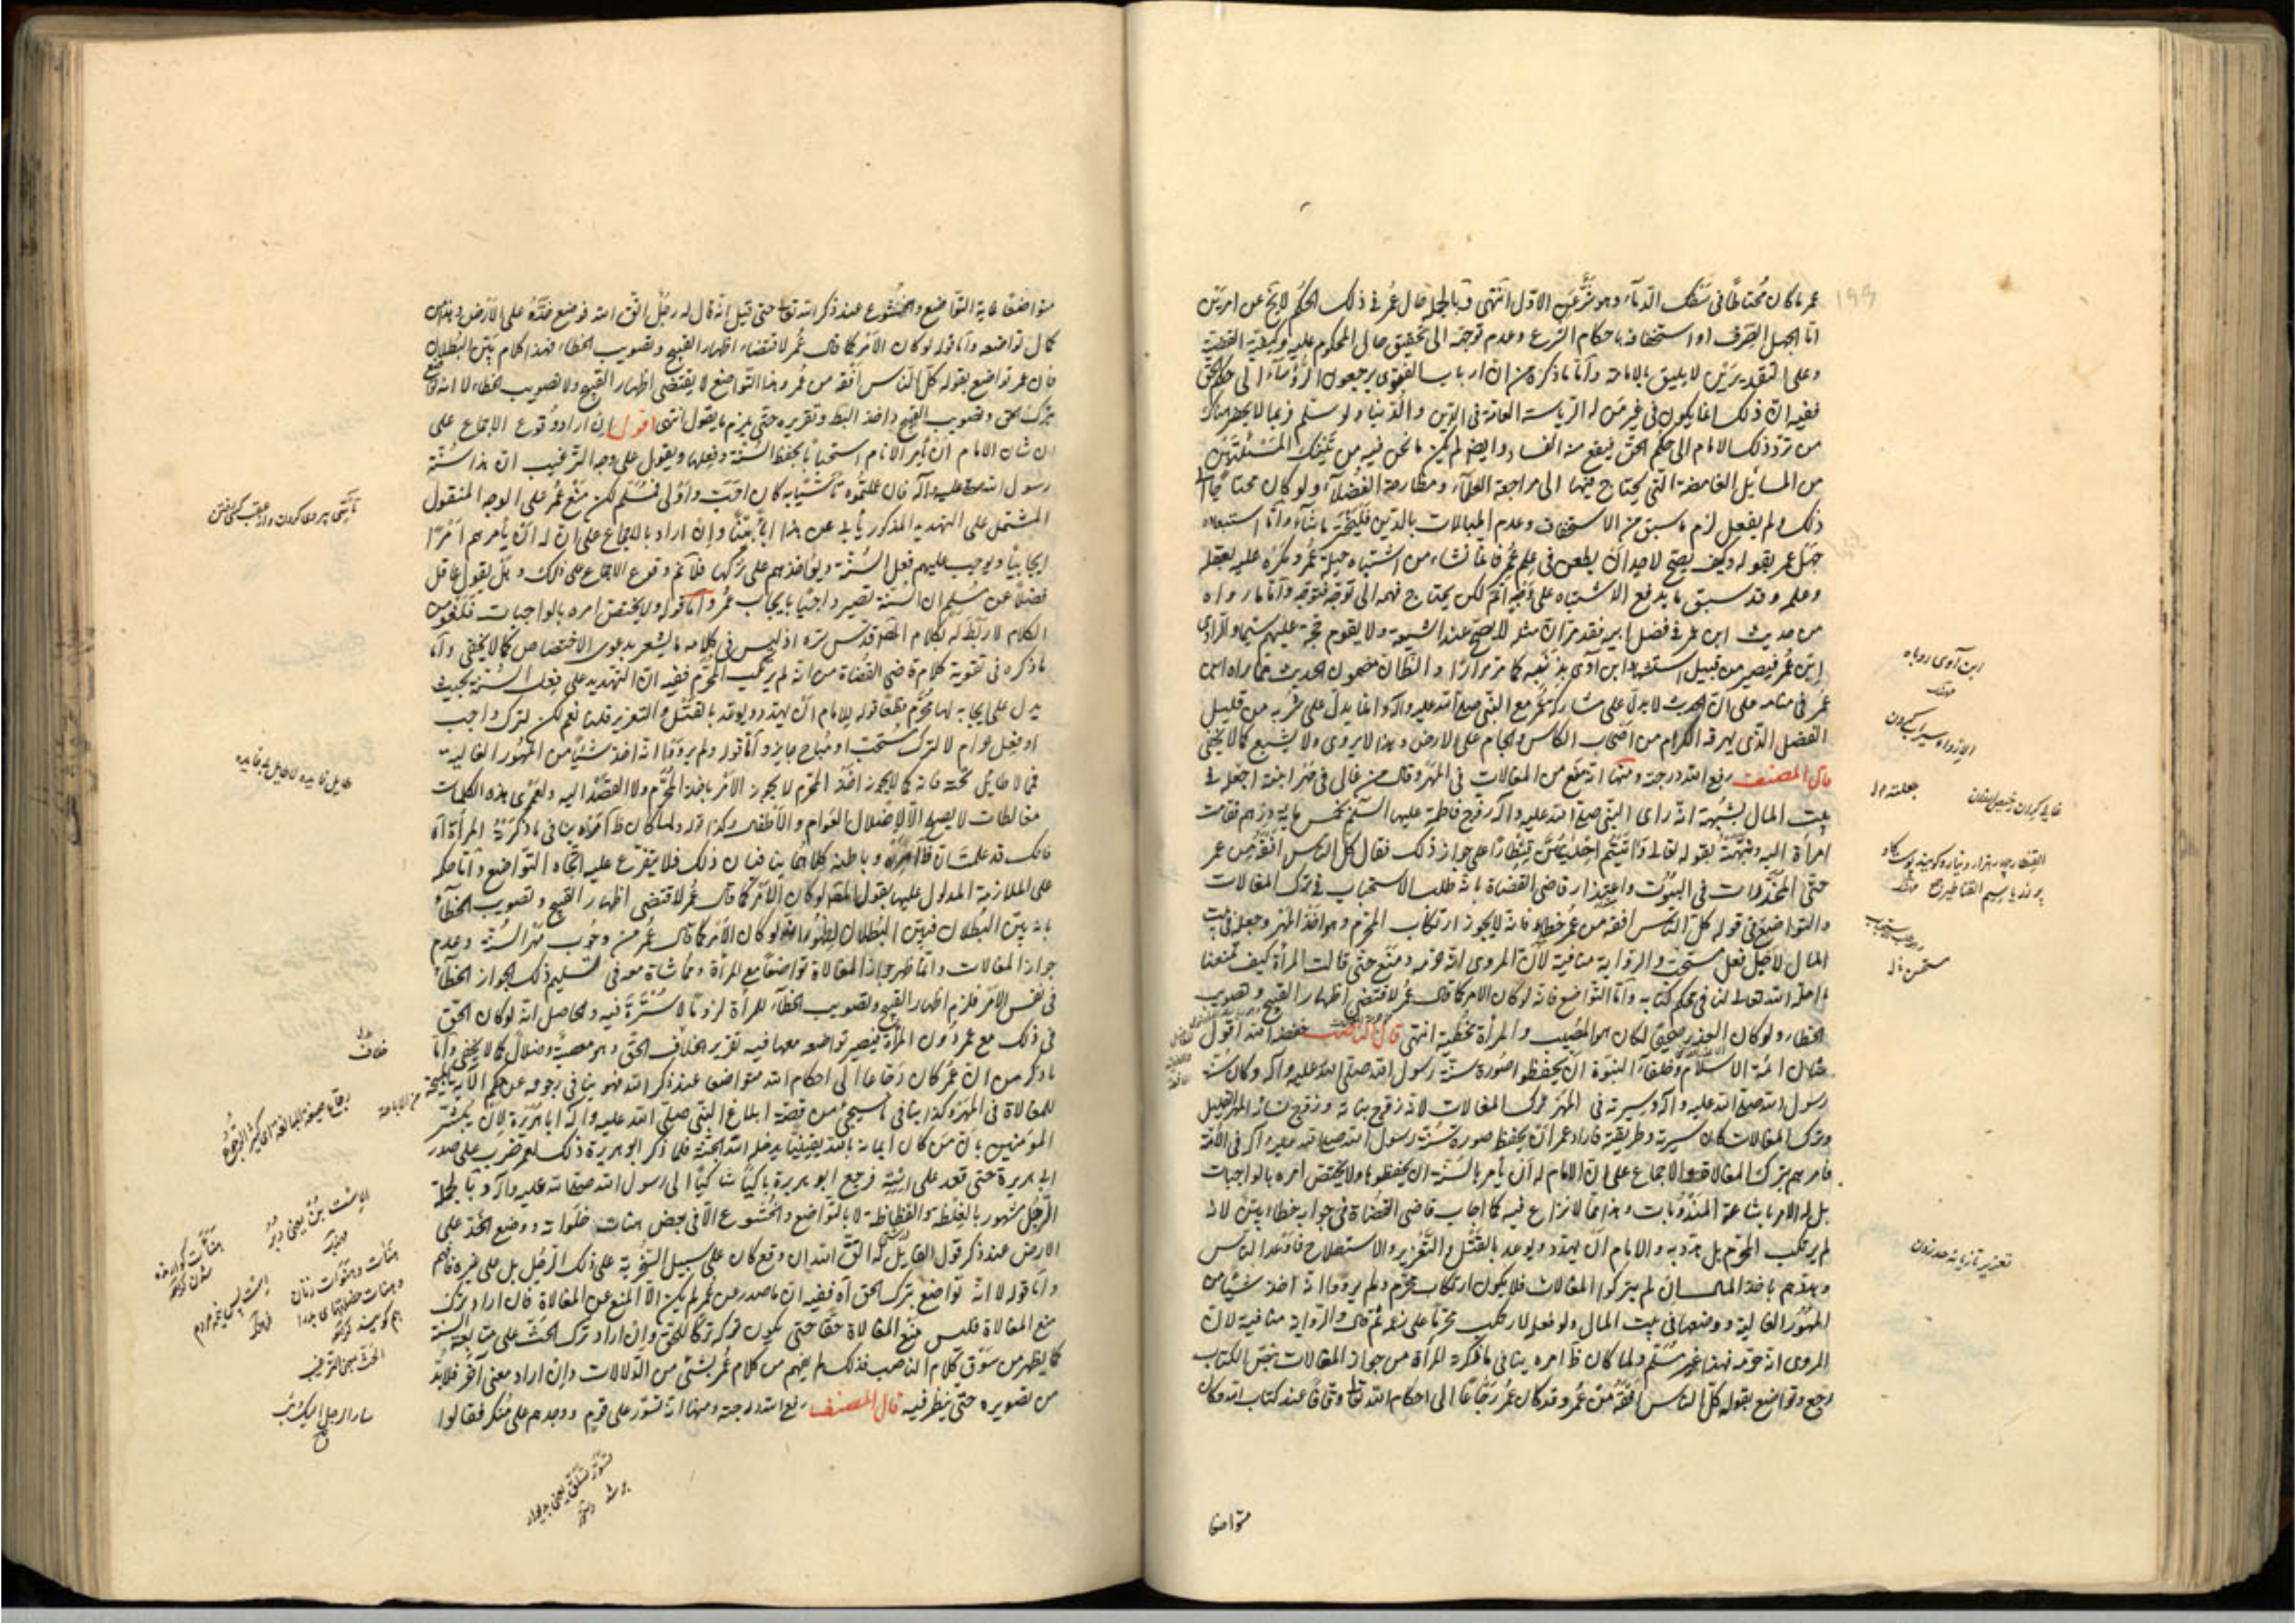 عمر ما كان محتاطا فى سفك الدماء وهو شر عن الاول انتهى وبالجملة حال عمر فى ذلك الحكم لا يخ عن امرين
اما الجهل الصرف او استخفافه باحكام الشرع وعدم توجهه الى تحقيق حال المحكوم عليه وكيفية القضية
وعلى التقديرين لا يليق بالامامة وأما ما ذكره من ان ارباب الفتوى يرجعون الرؤساء الى حكم الحق
ففيه ان ذلك انما يكون فى غير من له الرياسة العامة فى الدين والدنيا ولو سلم فربما لا يحضر هناك
من تردد ذلك الامام الى حكم الحق فيقع منه الفساد وايضا لم يكن ما نحن فيه من تينك المسئلتين
من المسائل الغامضة التى يحتاج فيها الى مراجعة العلماء ومطارحة الفضلاء ولو كان محتاجا الى
ذلك ولم يفعل لزم ما سبق من الاستخفاف وعدم المبالات بالدين فليختر ما شاء وأما استبعاده
جهل عمر بقوله وكيف يصح لاحد ان يطعن فى علم عمر فانما نشاء من اشتباه حيلة عمر ومكره عليه بعقله
وعلمه وقد سبق ما يدفع الاشتباه على وجه اتم لكن يحتاج فهمه الى توجه فتوجه وأما ما رواه
من حديث ابن عمر فى فضل ابيه فقد مر ان مثله لا يصح عند الشيعة ولا يقوم حجة عليهم سيما والراوى
ابن عمر فيصير من قبيل استشهاد ابن آوى بذنبه كما مر مرارا والظان مضمون الحديث مما راه ابن
عمر فى منامه على ان الحديث لا يدل على مشاركة عمر مع النبى صلى الله عليه وآله وانما يدل على شربه من قليل
الفضل الذى يهرقه الكرام من اصحاب الكاس والجام على الارض وهذا لا يروى ولا يشبع كما لا يخفى
قال المصنف رفع الله درجته ومنها انه منع من المغالات فى المهر وقال من غالى فى مهر ابنته اجعله فى
بيت المال بشبهة انه راى النبى صلى الله عليه وآله زوج فاطمة عليها السلم بخمس ماية درهم فقامت
امرأة اليه ونبهته بقوله تعالى وآتيتم احديهن قنطارا على جواز ذلك فقال كل الناس افقه من عمر
حتى المخدرات فى البيوت واعتذار قاضى القضاة بانه طلب الاستحباب فى ترك المغالات
والتواضع فى قوله كل الناس افقه من عمر خطاء فانه لا يجوز ارتكاب المحرم وهو اخذ المهر وجعله فى بيت
المال لاجل فعل مستحب والرواية منافية لان المروى انه حرمه ومنع حتى قالت المرأة كيف تمنعنا
ما احله الله تعالى لنا فى محكم كتابه وأما التواضع فانه لو كان الامر كما قال عمر لاقتضى اظهار القبيح وتصويب
الخطاء ولو كان العذر صحيحا لكان هو المصيب والمرأة مخطية انتهى قال الناصب خفضه الله اقول
شان ائمة الاسلام وخلفاء النبوة ان يحفظوا صورة سنة رسول الله صلى الله عليه وآله وكان سنة
رسول الله صلى الله عليه وآله وسيرته فى المهر ترك المغالات لانه زوج بناته وزوج نسائه المهر القليل
وترك المغالات كان سيرته وطريقته فاراد عمر ان يحفظ صورة سنة رسول الله صلى الله عليه وآله فى الامة
فامرهم بترك المغالات والاجماع على ان الامام له ان يأمر بالسنة ان يحفظوها ولا يختص امره بالواجبات
بل له الامر باشاعة المندوبات وهذا مما لا نزاع فيه كما اجاب قاضى القضاة فى جوابه خطاء بين لانه
لم يرتكب المحرم بل هدد به والامام ان يهدد ويوعد بالقتل والتعزير والاستصلاح فاوعد الناس
وهددهم باخذ المال ان لم يتركوا المغالات فلا يكون ارتكاب محرم ولم يرو انه اخذ شيئا من
المهور الغالية ووضعها فى بيت المال ولو فعله لارتكب محرما على زعمه ثم قال والرواية منافية لان
المروى انه حرمه فهذا غير مسلم ولما كان ظاهره ينافى ما ذكرته المرأة من جواز المغالات بنص الكتاب
رجع وتواضع بقوله كل الناس افقه من عمر وقد كان عمر رجاعا الى احكام الله تعالى وقافا عند كتاب الله وكان
متواضعا
ابن آوى روباه
الارواء سيراب كردن
جعلته له
تعزير تازيانه حد زدن
متواضعا غاية التواضع والخشوع عند ذكر الله تعالى حتى قيل انه قال له رجل اتق الله فوضع خده على الارض وهذا من
كمال تواضعه وأما قوله لو كان الامر كما قال عمر لاقتضاء اظهار القبيح وتصويب الخطاء فهذا كلام بين البطلان
فان عمر تواضع بقوله كل الناس افقه من عمر وهذا التواضع لا يقتضى اظهار القبيح ولا تصويب الخطاء لا انه تواضع
بترك الحق وتصويب القبيح واخذ الباطل وتقريره حتى يلزم ما يقول انتهى اقول ان اراد وقوع الاجماع على
ان شان الامام ان يأمر الانام استحبابا بحفظ السنة وفعلها ويقول على وجه الترغيب ان هذا سنة
رسول الله صلى الله عليه وآله فان علتموه تأسيا به كان احب واولى فمسلم لكن منع عمر على الوجه المنقول
المشتمل على التهديد المذكور يأبى عن هذا وإن اراد بالاجماع على ان له ان يأمرهم امرا
ايجابيا ويوجب عليهم فعل السنة ويؤاخذهم على تركها فلا نم وقوع الاجماع على ذلك وهل يقول عاقل
فضلا عن مسلم ان السنة تصير واجبا بايجاب عمر وأما قوله ولا يختص امره بالواجبات فلغو من
الكلام لا ربط له بكلام المصنف قدس سره اذ ليس فى كلامه ما يشعر بدعوى الاختصاص كما لا يخفى وأما
ما ذكره فى تقوية كلام قاضى القضاة من انه لم يرتكب المحرم ففيه ان التهديد على فعل السنة بحيث
يدل على ايجابه لها محرم قطعا قوله للامام ان يهدد ويوعد بالقتل والتعزير قلنا نعم لكن لترك واجب
او فعل حرام لا لترك مستحب او مباح جايز وأما قوله ولم يرو انه اخذ شيئا من المهور الغالية
فما لا طائل تحته فانه كما لا يجوز اخذ المحرم لا يجوز الامر باخذ المحرم ولا القصد اليه ولعمرى هذه الكلمات
مغالطات لا يصلح الا لاضلال العوام والاطفال وكذا قوله ولما كان ظاهره ينافى ما ذكرته المرأة آه
فانك قد علمت ان ظاهره وباطنه كلاهما ينافيان ذلك فلا يتفرع عليه اتجاه التواضع وأما حكمه
على الملازمة المدلول عليها بقول المصنف لو كان الامر كما قال عمر لاقتضى اظهار القبيح وتصويب الخطاء
بانه بين البطلان فبين البطلان لظهور انه لو كان الامر كما قال عمر من وجوب مهر السنة وعدم
جواز المغالات وانما ظهر جواز المغالاة تواضعا مع المرأة ومماشاة معه فى تسليم ذلك الجواز الخطاء
فى نفس الامر فلزم اظهار القبيح وتصويب الخطاء للمرأة لزوما لا سترة فيه والحاصل انه لو كان الحق
فى ذلك مع عمر دون المرأة فيصير تواضعه معها فيه تقرير خلاف الحق وهو معصية وضلال كما لا يخفى وأما
ما ذكر من ان عمر كان رجاعا الى احكام الله متواضعا عند ذكر الله فهو ينافى رجوعه عن حكم الآية المبيحة
للمغالاة فى المهر وكذا ينافى ما سيجئ من قصة ابلاغ النبى صلى الله عليه وآله ابا هريرة لان يبشر
المؤمنين بان من كان ايمانه بالله يقينيا يدخله الله الجنة فلما ذكر ابو هريرة ذلك لعمر ضرب على صدر
ابى هريرة حتى قعد على استه فرجع ابو هريرة باكيا شاكيا الى رسول الله صلى الله عليه وآله وبالجملة
الرجل مشهور بالغلظة والفظاظة لا بالتواضع والخشوع الا فى بعض هناته خلواته ووضع الخد على
الارض عند ذكر قول القايل له اتق الله ان وقع كان على سبيل السخرية على ذلك الرجل بل على غيره فافهم
وأما قوله لا انه تواضع بترك الحق آه ففيه ان ما صدر عن عمر لم يكن الا المنع عن المغالاة فان اراد بترك
منع المغالاة فليس منع المغالاة حقا حتى يكون تركه تركا للحق وان اراد ترك الحث على متابعة السنة
كما يظهر من سوق كلام الناصب فذلك لم يفهم من كلام عمر بشئ من الدلالات وإن اراد معنى آخر فلا بد
من تصويره حتى ينظر فيه قال المصنف رفع الله درجته ومنها انه تسور على قوم ووجدهم على منكر فقالوا
تأسى پيروى كردن
طايل فايده لا طايل بى فايده
الحث بمعنى الترغيب